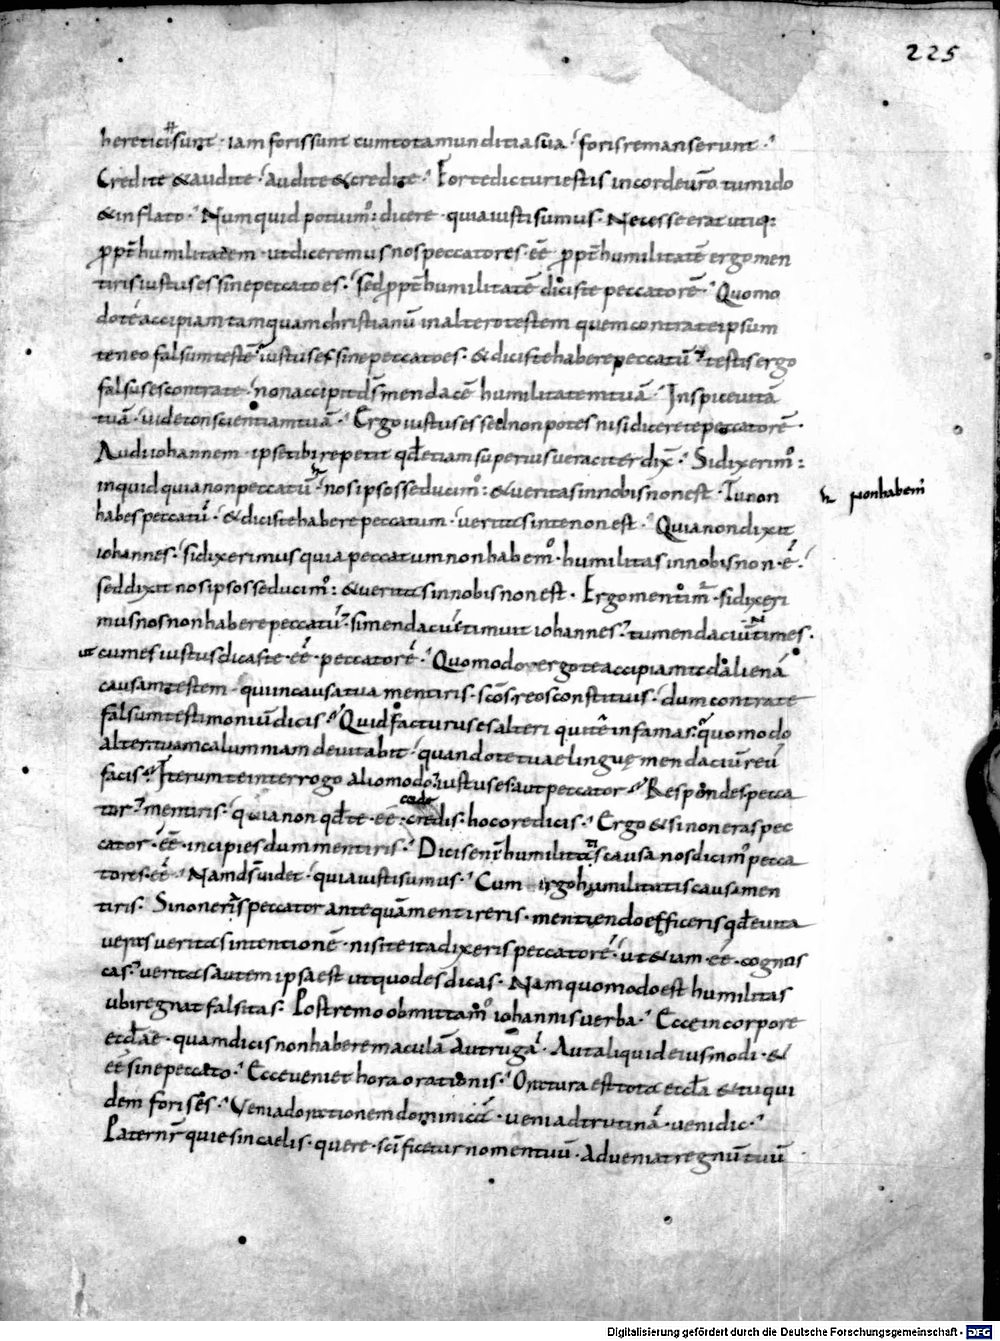 225
heretici sunt · iam foris sunt cum tota munditia sua · foris remanserunt ·
Credite & audite · audite & credite · Forte dicturi estis in corde uro tumido
& inflato · Numquid potuim: dicere · quia iusti sumus · Necesse erat utiq:
ppt humilitatem · ut diceremus nos peccatores · ee · ppt humilitatē ergo men
tiris iustus es sine peccato es · sed ppt humilitatē diciste peccatorē · Quomo
do te accipiam tamquam christianū in altero testem quem contra te ipsum
teneo falsum testē · iustus es sine peccato es · & dicis te habere peccatū · testis ergo
falsus es contra te · non accipit ds mendacē humilitatem tuā · Inspice uitā
tuā · uide conscientiam tuā · Ergo iustus es sed non potes nisi dicere te peccatorē ·
Audi iohannem · ipse tibi repetit qd etiam superius ueraciter dix · Si dixerim:
inquid quia non peccatū · nos ipsos seducim: & ueritas in nobis non est · Tu non
h non habem
habes peccatū · & dicis te habere peccatum · ueritas in te non est · Quia non dixit
iohannes · si dixerimus quia peccatum non habem · humilitas in nobis non · ē ·
sed dixit nos ipsos seducim: & ueritas in nobis non est · Ergo mentim · si dixeri
mus nos non habere peccatū · si mendaciū timuit iohannes · tu mendaciū n times ·
ut cum es iustus dicas te · ee · peccatorē · Quomodo ergo te accipiam tc d aliena
causam testem · qui in causa tua mentiris · scos reos constituis · dum contra te
falsum testimoniū dicis · Quid facturus es alteri qui te infamas · quomodo
alter tuam calumniam deuitabit · quando te tuae linguę mendaciū reū
facis · Iterum te interrogo alio modo · iustus es · aut peccator · Respondes pecca
tor · mentiris · quia non qd te · ee · credis · hoc ore dicis · Ergo & si non eras pec
cator · ee · incipies dum mentiris · Dicis enī humilitatis causa nos dicim pecca
tores · ee · Nam ds uidet · quia iusti sumus · Cum ergo humilitatis causa men
tiris · Si non eris peccator antequā mentireris · mentiendo efficeris qd euita
ueras ueritas in te non ē · nisi te ita dixeris peccatorē · ut etiam · ee · cognos
cas · ueritas autem ipsa est ut quod es dicas · Nam quomodo est humilitas
ubi regnat falsitas · Postremo obmittam iohannis uerba · Ecce in corpore
eccl ae · quam dicis non habere maculā aut rugā · Aut aliquid eiusmodi · &
ee sine peccato · Ecce ueniet hora orationis · Oratura est tota eccla & tu qui
dem foris es · Veni ad orationem dominicā · ueni ad trutinā · ueni dic ·
Pater nr qui es in caelis · quere · scificetur nomen tuū · Adueniat regnū tuū
Digitalisierung gefördert durch die Deutsche Forschungsgemeinschaft - DFG